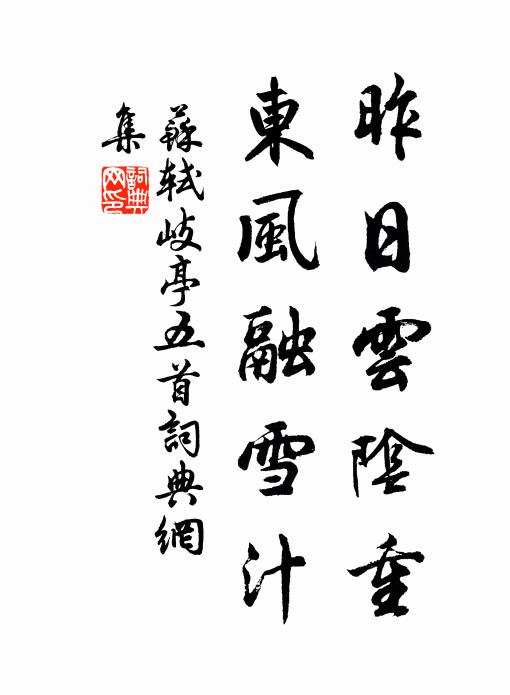 昨日雲陰重
東風融雪汁
蘇軾岐亭五首詞典網
集
詞典
网印